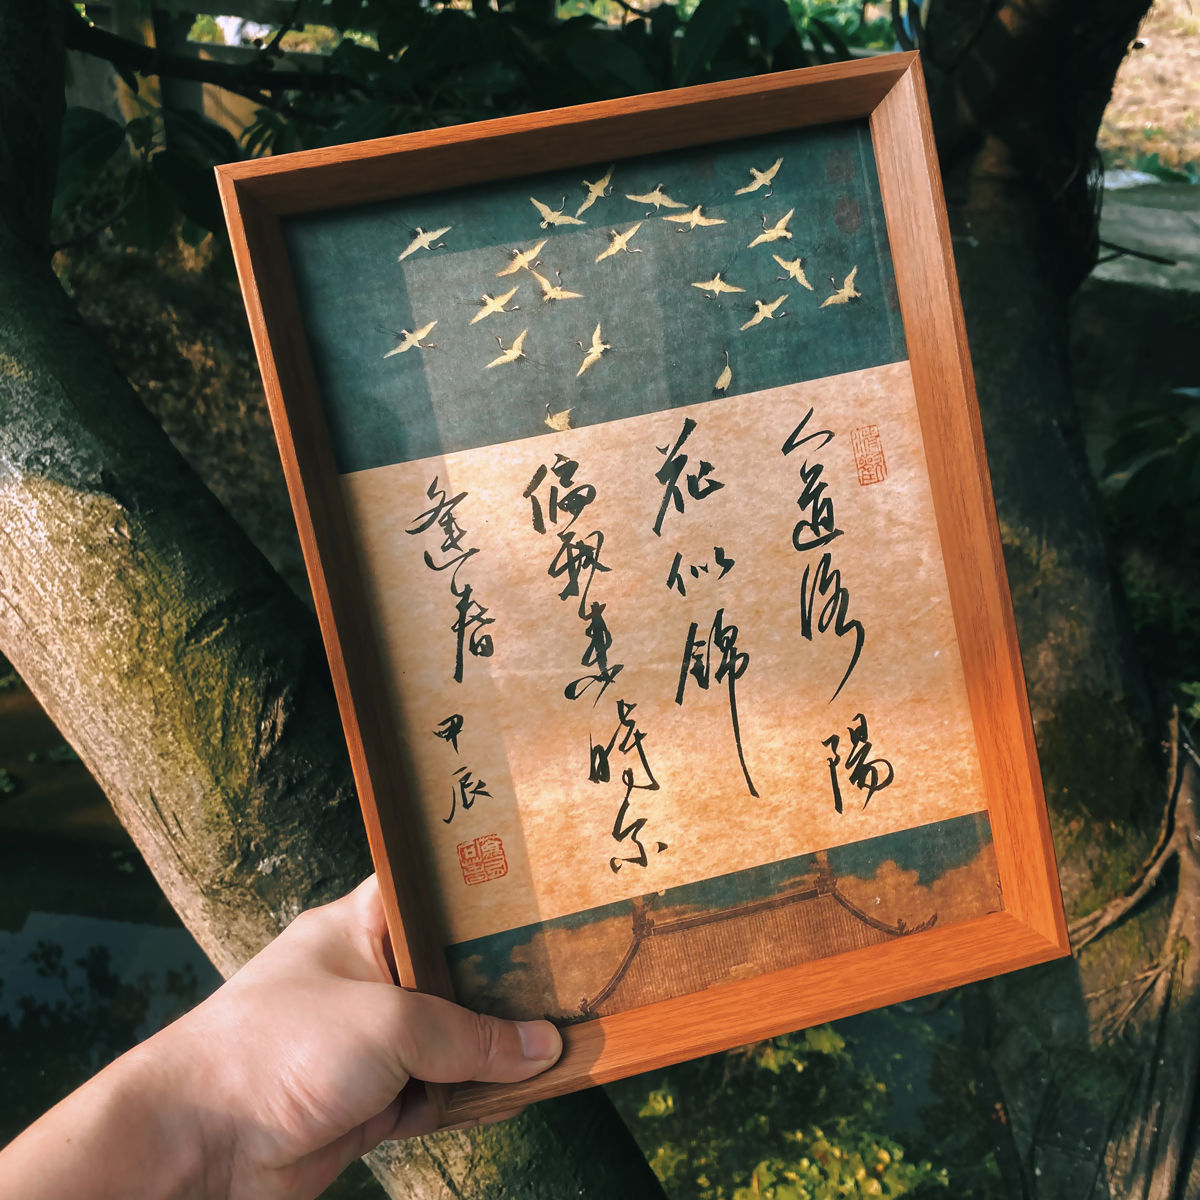 人道洛陽
花似錦
偏我来時不
逢春
甲辰